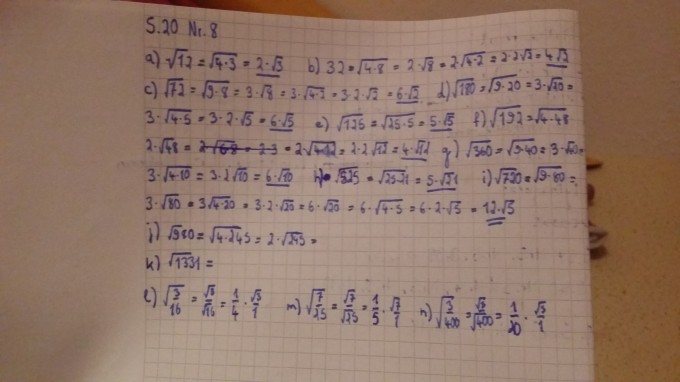 S.20 Nr. 8
a) √12 = √4·3 = 2·√3 b) 32 = √4·8 = 2·√8 = 2·√4·2 = 2·2√2 = 4√2
c) √72 = √9·8 = 3·√8 = 3·√4·2 = 3·2·√2 = 6·√2 d) √180 = √9·20 = 3·√20 =
3·√4·5 = 3·2·√5 = 6·√5 e) √125 = √25·5 = 5·√5 f) √192 = √4·48
2·√48 = 2·√4·12 = 2·2√12 = 4·√12 g) √360 = √9·40 = 3·√40 =
3·√4·10 = 3·2√10 = 6·√10 h) √525 = √25·21 = 5·√21 i) √720 = √9·80 =
3·√80 = 3√4·20 = 3·2·√20 = 6·√20 = 6·√4·5 = 6·2·√5 = 12·√5
j) √980 = √4·245 = 2·√245 =
k) √1331 =
l) √3/16 = √3/√16 = 1/4 · √3/1 m) √7/25 = √7/√25 = 1/5 · √7/1 n) √3/400 = √3/√400 = 1/20 · √3/1